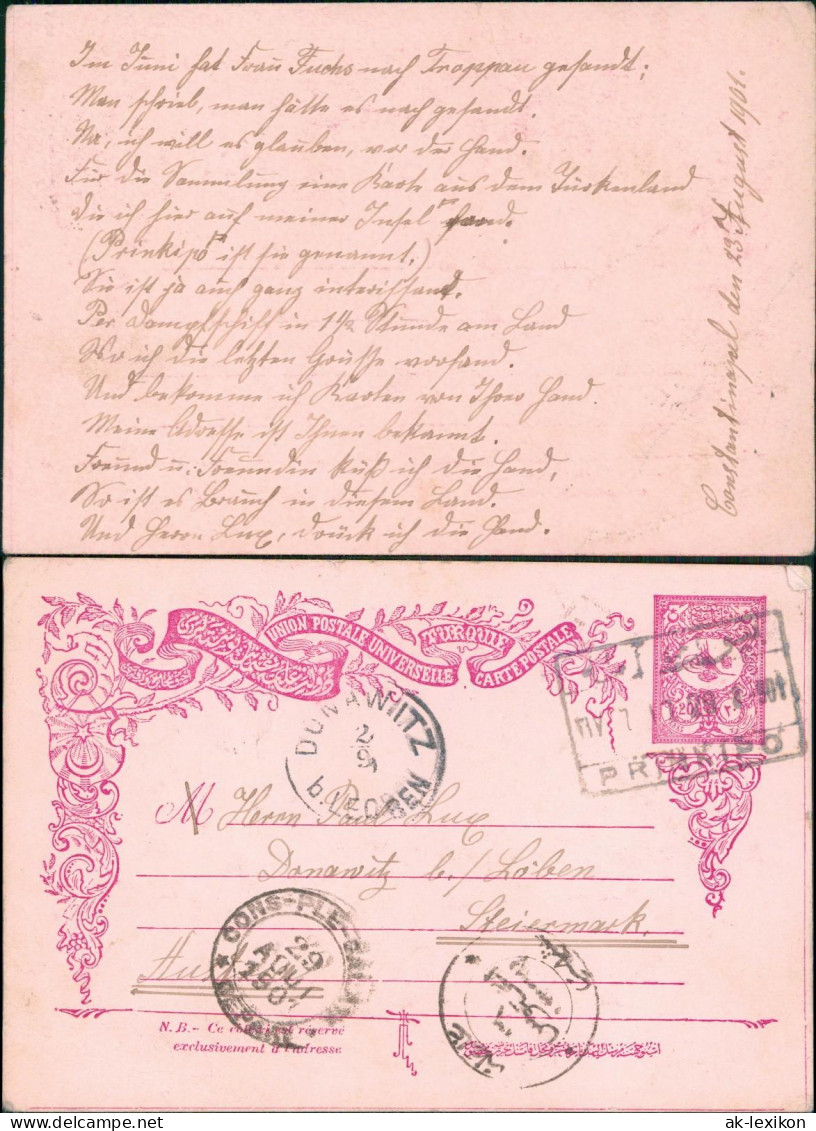 Im Juni hat Frau Fuchs nach Troppau gesandt;
Man schrieb, man hätte es nach gesandt.
Na, ich will es glauben, vor der Hand.
Für die Sammlung eine Karte aus dem Türkenland
die ich hier auf meiner Insel fand.
(Prinkipo ist sie genannt.)
Sie ist ja auch ganz interissant.
Per Dampfschiff in 1½ Stunde am Land
Wo ich die letzten Grüsse vorfand.
Und bekomme ich Karten von Ihrer Hand
Meine Adresse ist Ihnen bekannt.
Freund u: Freundin küß ich die Hand,
So ist es Brauch in diesem Land.
Und Herrn Lux, drück ich die Hand.
Constantinopel den 23. August 1901.
UNION POSTALE UNIVERSELLE
TURQUIE
CARTE POSTALE
20
PRINKIPO
DONAWITZ
2/9
b. LEOBEN
M Herrn Paul Lux
Donawitz b./ Löben
Steiermark.
CONS-PLE-GALATA
29
AOUT
1901
DEPART
N.B.- Ce côté est réservé
exclusivement à l'adresse
ak-lexikon